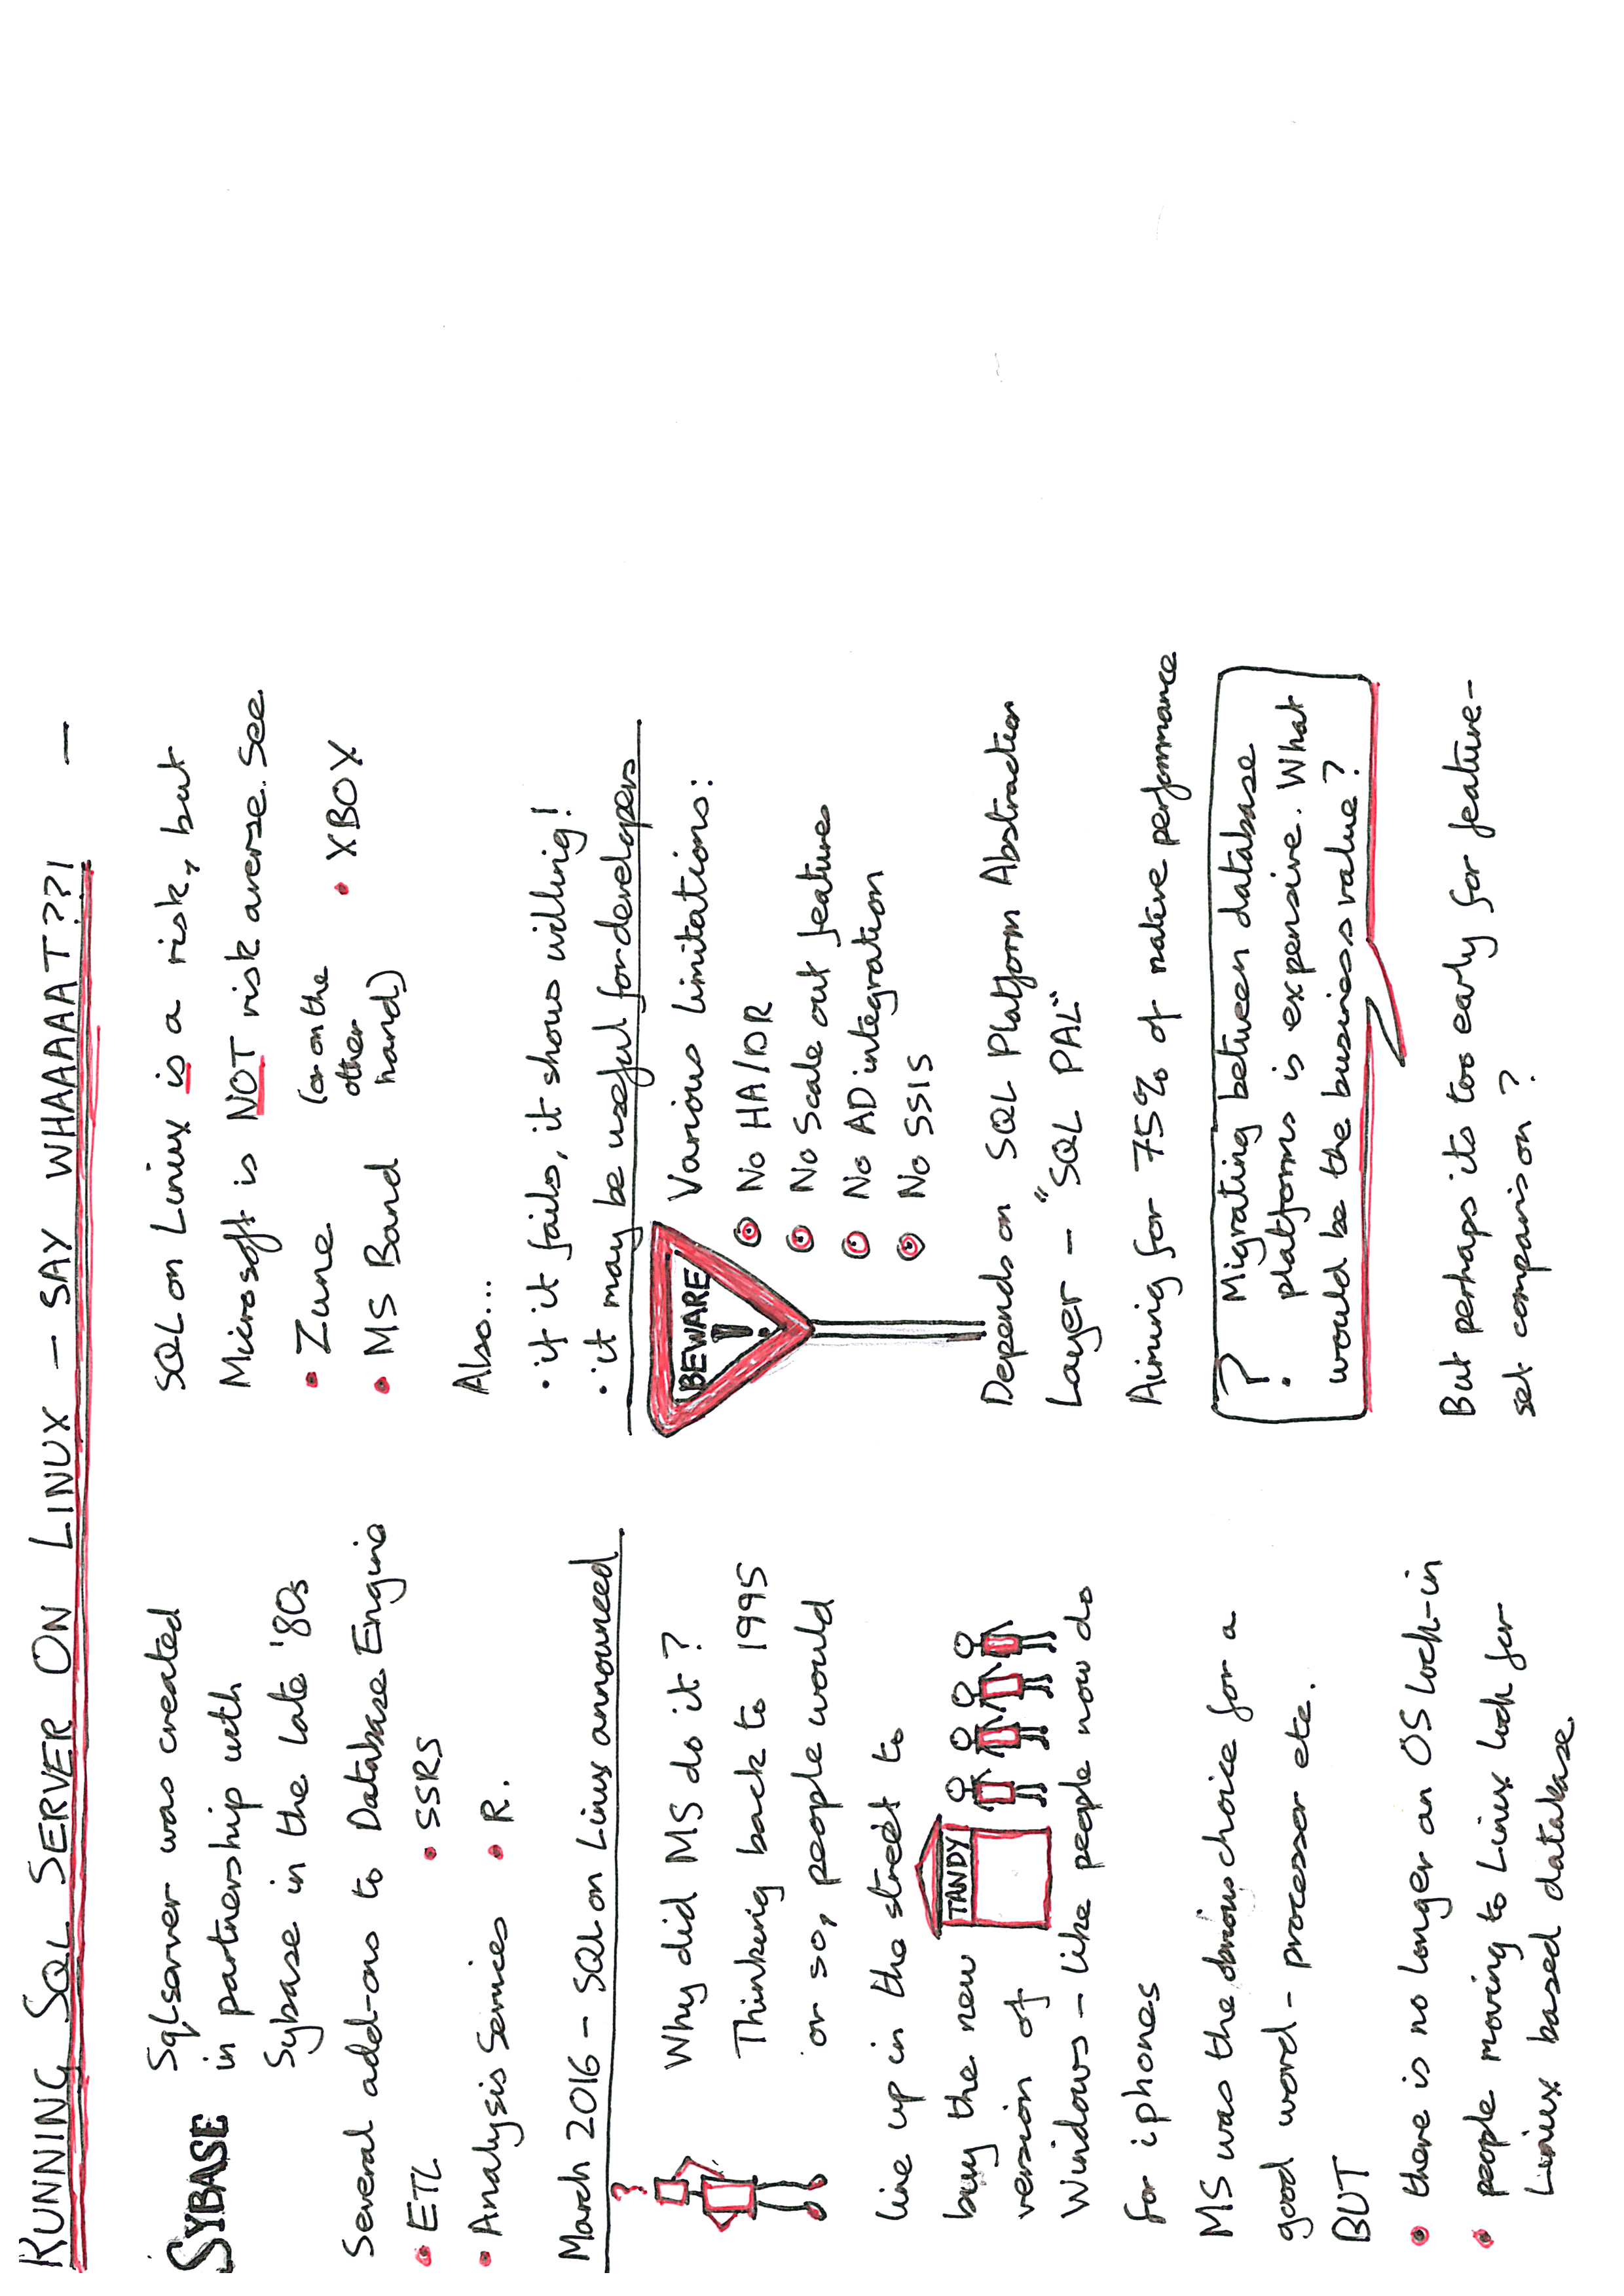 RUNNING SQL SERVER ON LINUX - SAY WHAAAAAT??! -
SYBASE
Sqlserver was created
in partnership with
Sybase in the late '80s
Several add-ons to Database Engine
• ETL • SSRS
• Analysis Services • R.
March 2016 - SQL on Linux announced
?
Why did MS do it?
Thinking back to 1995
or so, people would
line up in the street to
buy the new
version of
TANDY
Windows - like people now do
for iphones
MS was the obvious choice for a
good word-processor etc.
BUT
• there is no longer an OS lock-in
• people moving to Linux look for
Linux based database
SQL on Linux is a risk, but
Microsoft is NOT risk averse. See
• Zune (or on the
other
hand)
• XBOX
• MS Band
Also...
• if it fails, it shows willing!
• it may be useful for developers
BEWARE
!
Various limitations:
• No HA/DR
• No Scale out features
• No AD integration
• No SSIS
Depends on SQL Platform Abstraction
Layer - "SQL PAL"
Aiming for 75% of native performance
? Migrating between database
platforms is expensive. What
would be the business value?
But perhaps its too early for feature-
set comparison?